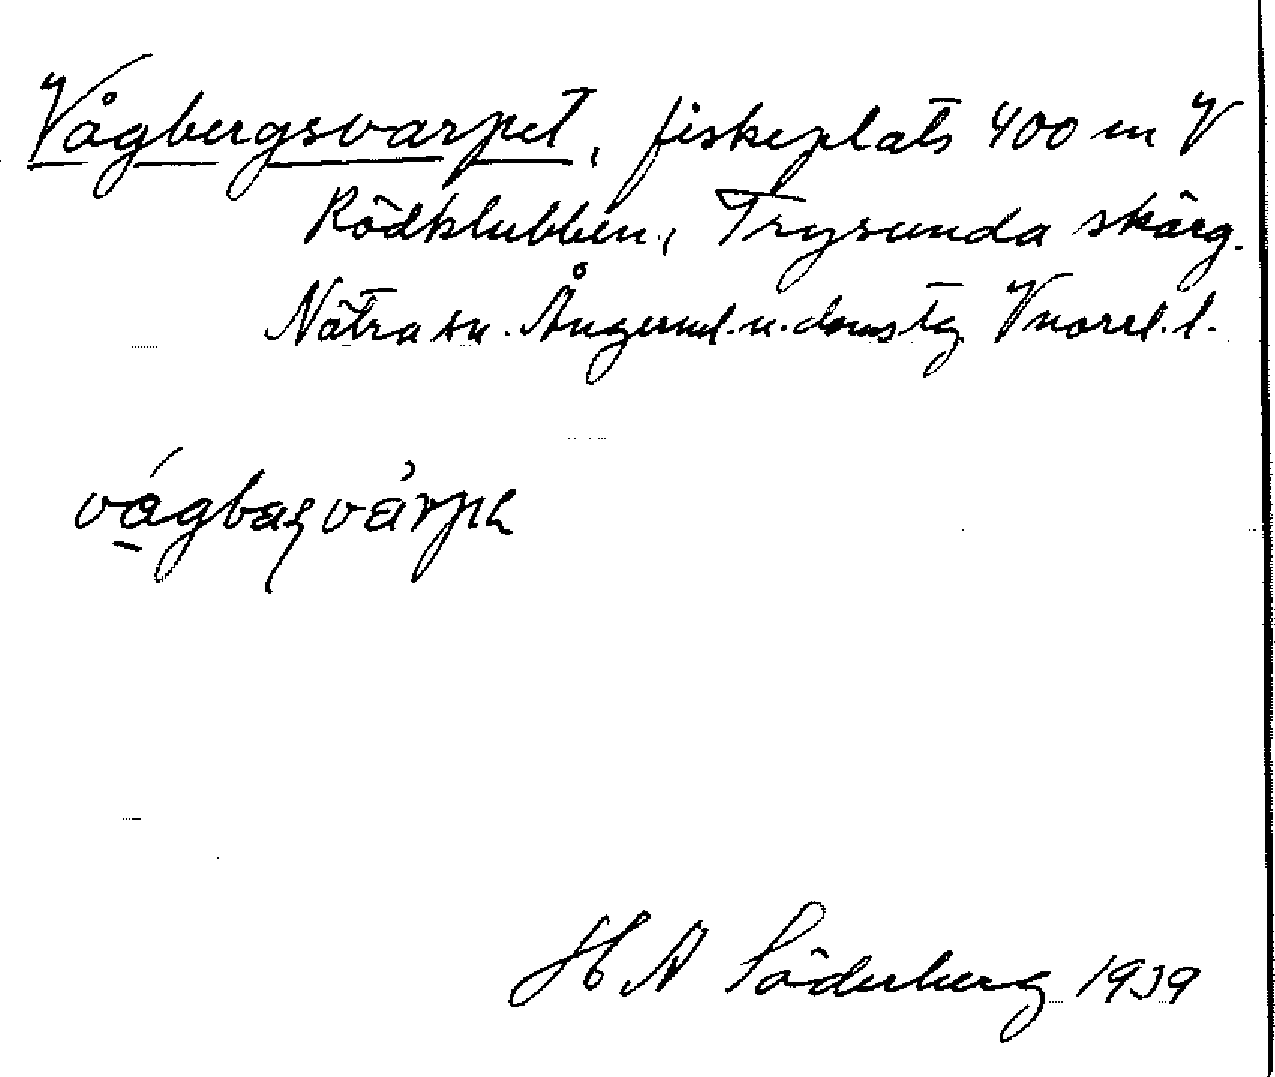 Vågbergsvarpet, fiskeplats 400 m V
Rödklubben, Trysunda skärg.
Nätra sn. Ångerml. n. domstg Vnorrl. l.
H A Söderberg 1939